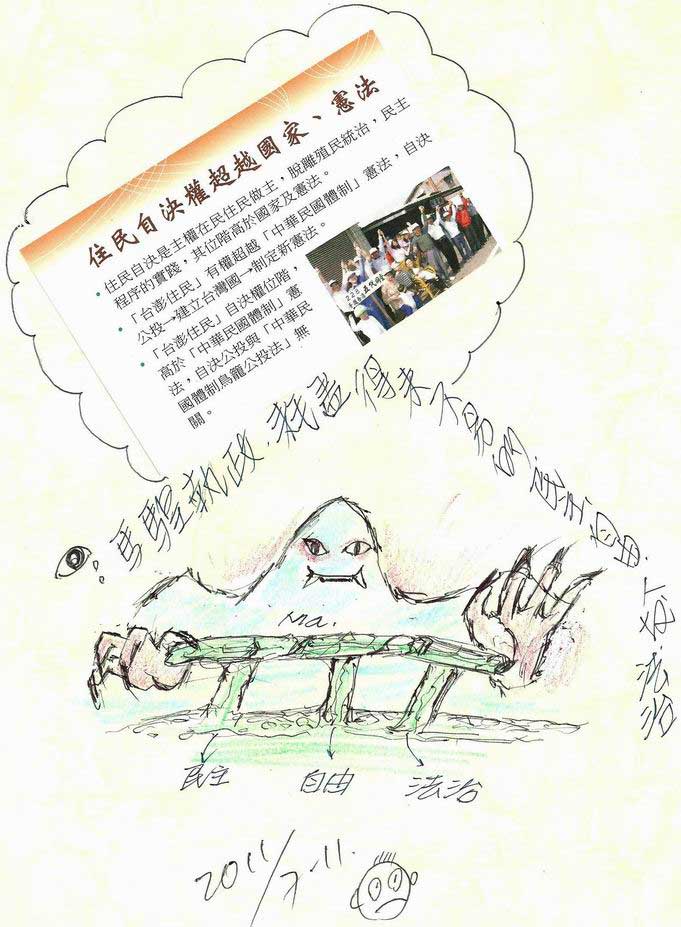 住民自決權超越國家、憲法
住民自決是主權在民住民做主，脫離殖民統治，民主
程序的實踐，其位階高於國家及憲法。
「台澎住民」有權超越「中華民國體制」憲法，自決
公投→建立台灣國→制定新憲法。
「台澎住民」自決權位階，
高於「中華民國體制」憲
法，自決公投與「中華民
國體制鳥籠公投法」無
關。
執政，耗盡得來不易的民主自由，法治
Ma.
民主
自由
法治
2011/7.11